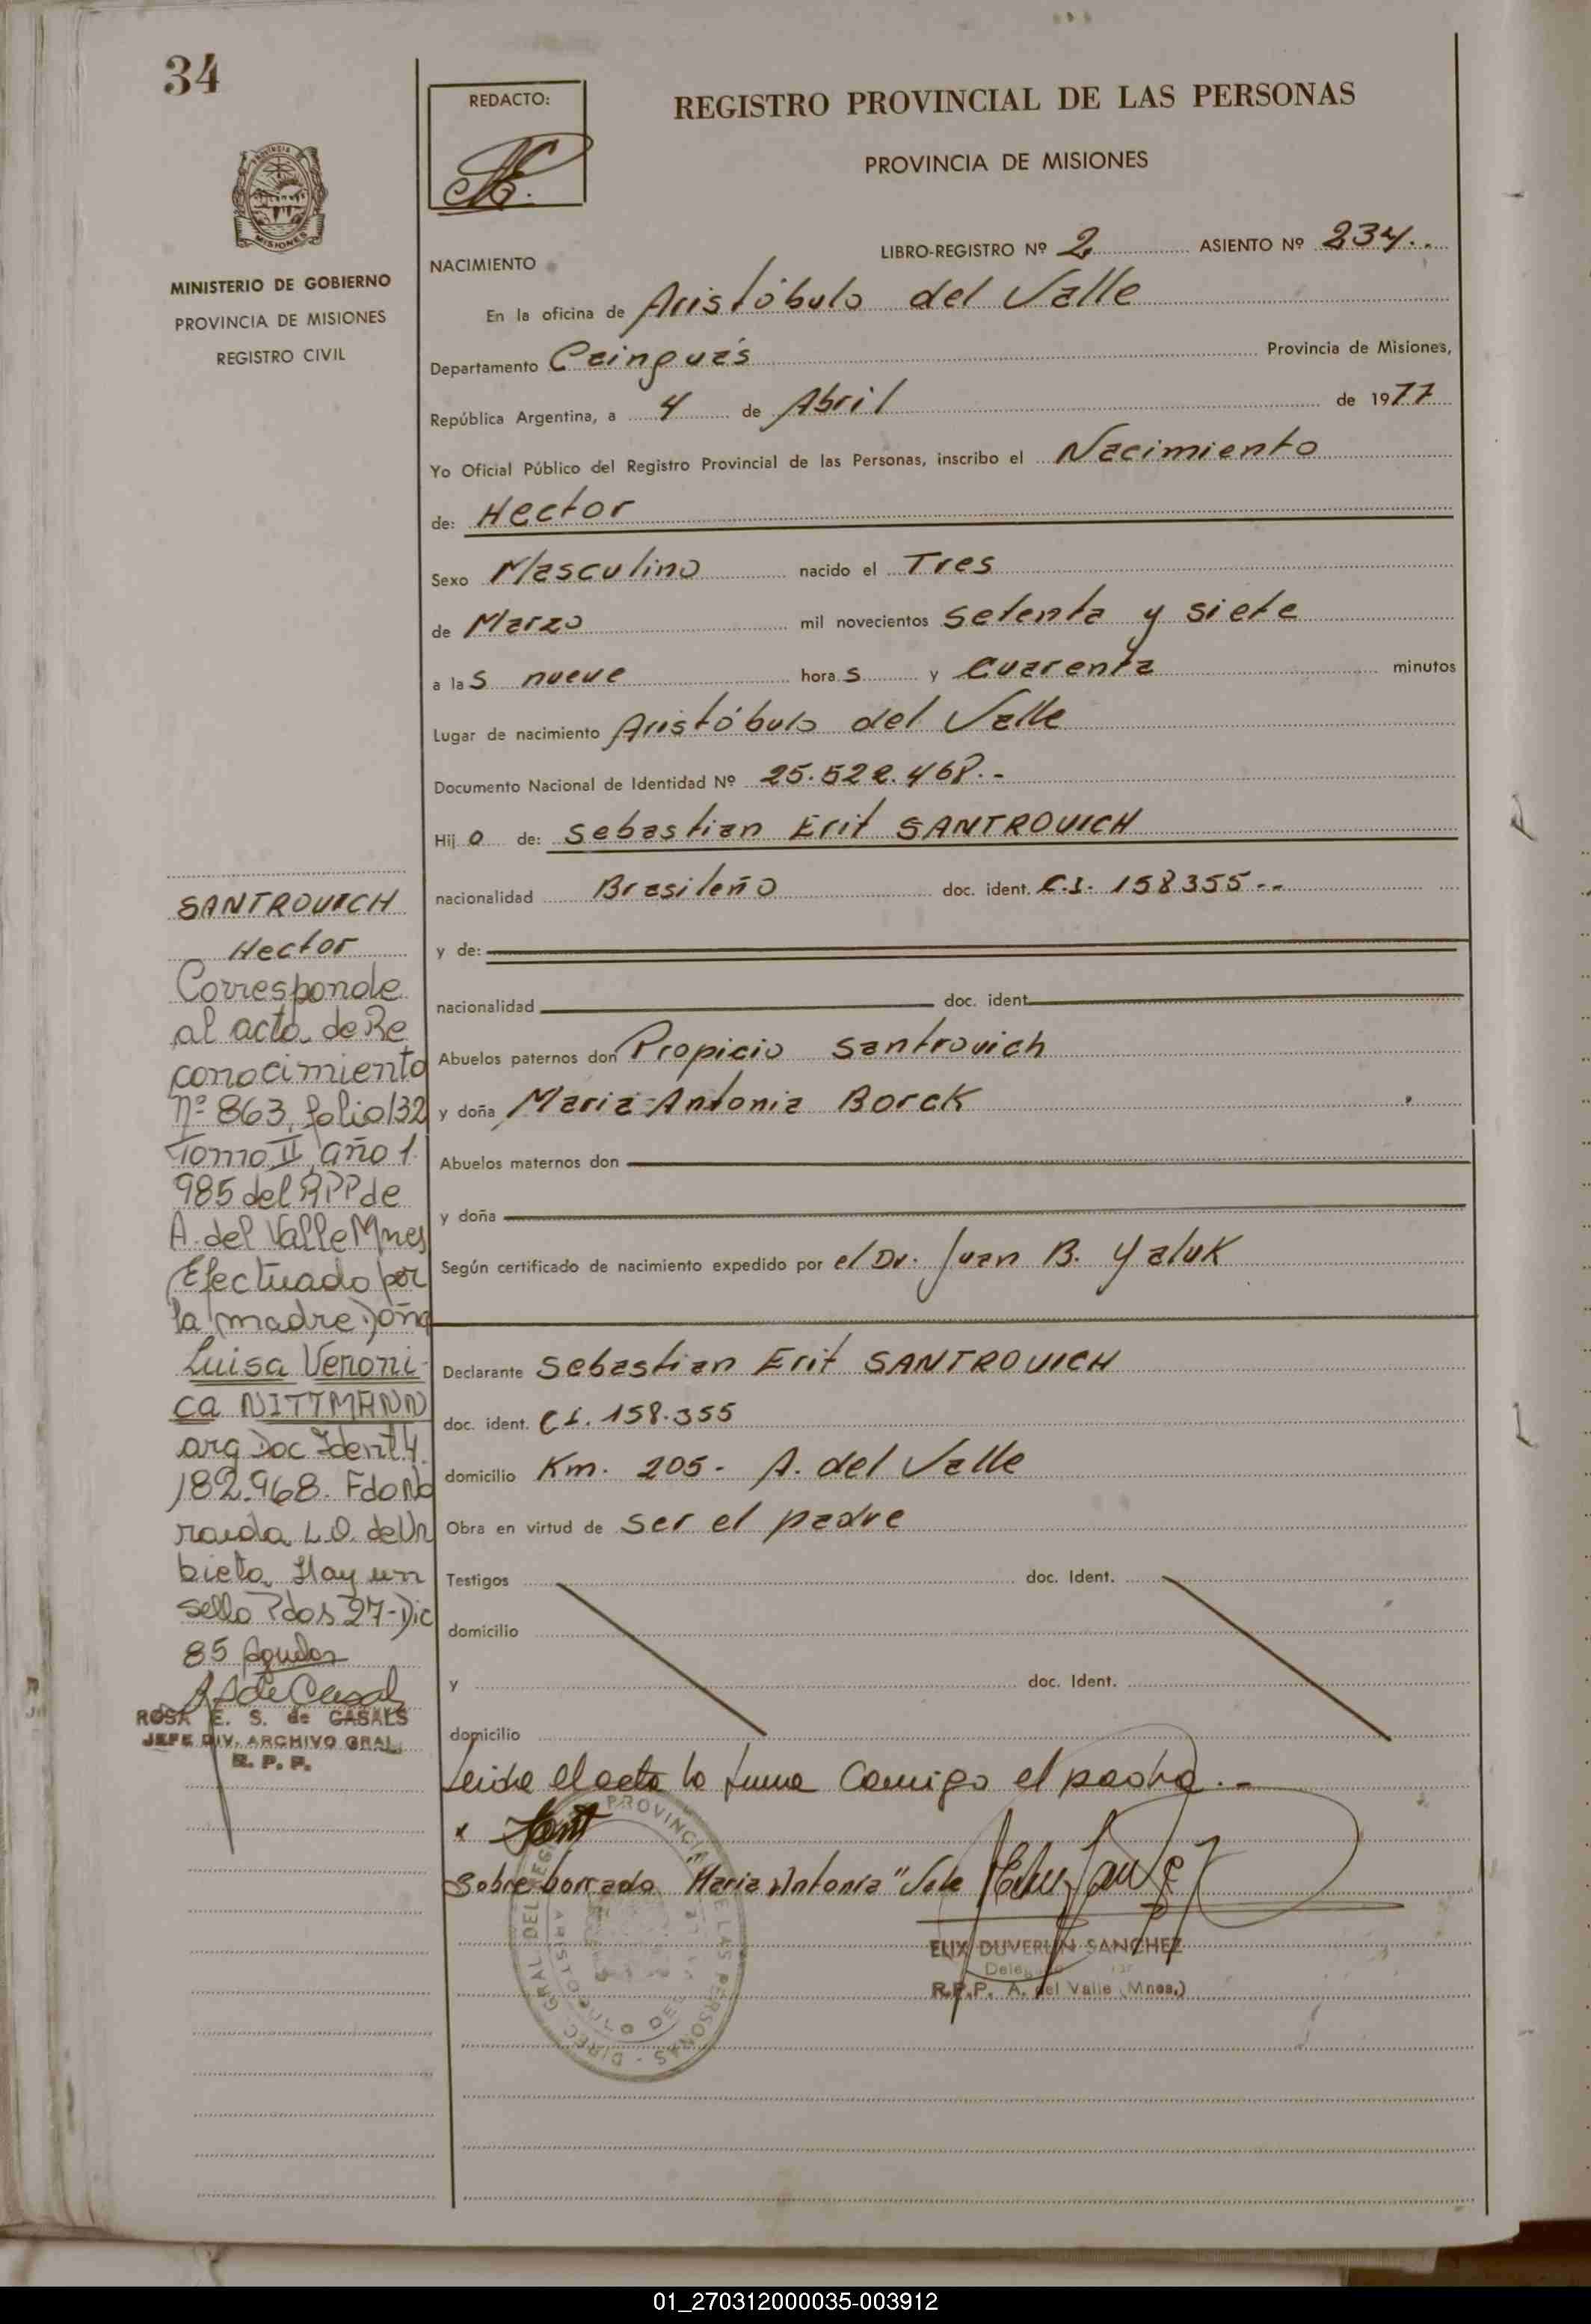 34
REDACTO:
REGISTRO PROVINCIAL DE LAS PERSONAS
PROVINCIA DE MISIONES
MINISTERIO DE GOBIERNO
PROVINCIA DE MISIONES
REGISTRO CIVIL
LIBRO-REGISTRO Nº 2 ASIENTO Nº 234..
NACIMIENTO
En la oficina de Aristóbulo del Valle
Departamento Cainguás Provincia de Misiones,
República Argentina, a 4 de Abril de 1977
Yo Oficial Público del Registro Provincial de las Personas, inscribo el Nacimiento
de: Hector
Sexo Masculino nacido el Tres
de Marzo mil novecientos setenta y siete
a las nueve horas y cuarenta minutos
Lugar de nacimiento Aristóbulo del Valle
Documento Nacional de Identidad Nº 25.522.468.-
Hijo de: Sebastian Erit SANTROVICH
nacionalidad Brasileño doc. ident. C.I. 158355--
y de:
nacionalidad doc. ident.
Abuelos paternos don Propicio Santrovich
y doña Maria Antonia Borck
Abuelos maternos don
y doña
Según certificado de nacimiento expedido por el Dr. Juan B. Yaluk
Declarante Sebastian Erit SANTROVICH
doc. ident. CI. 158.355
domicilio Km. 205- A. del Valle
Obra en virtud de ser el padre
Testigos doc. Ident.
domicilio
y doc. Ident.
domicilio
Leida el acta la firma Conmigo el padre.-
Sobre borrado "Maria Antonia" Vale
ELIX DUVERLIN SANCHEZ
R.P.P. A. del Valle (Mnes.)
SANTROVICH
Hector
Corresponde
al acto de Re
conocimiento
Nº 863, folio 132
Tomo II, año 1.
985 del RPP de
A. del Valle Mnes
Efectuado por
la madre Doña
Luisa Veroni-
ca NITTMANN
arg Doc Ident 4.
182.968. Fdo No
raida L.O. de Ur
bieta. Hay un
sello Pdos 27-Dic
85
ROSA E. S. de CASALS
JEFE DIV. ARCHIVO GRAL.
R. P. P.
01_270312000035-003912